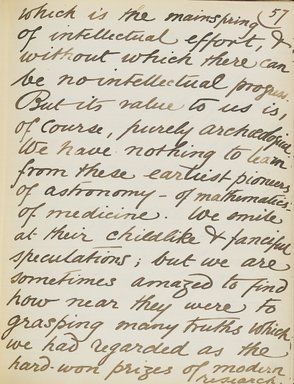 57
which is the mainspring
of intellectual effort, &
without which there can
be no intellectual progress.
But its value to us is,
of course, purely archæological.
We have nothing to learn
from these earliest pioneers
of astronomy – of mathematics –
of medicine. We smile
at their childlike & fanciful
speculations; but we are
sometimes amazed to find
how near they were to
grasping many truths which
we had regarded as the
hard-won prizes of modern
research.